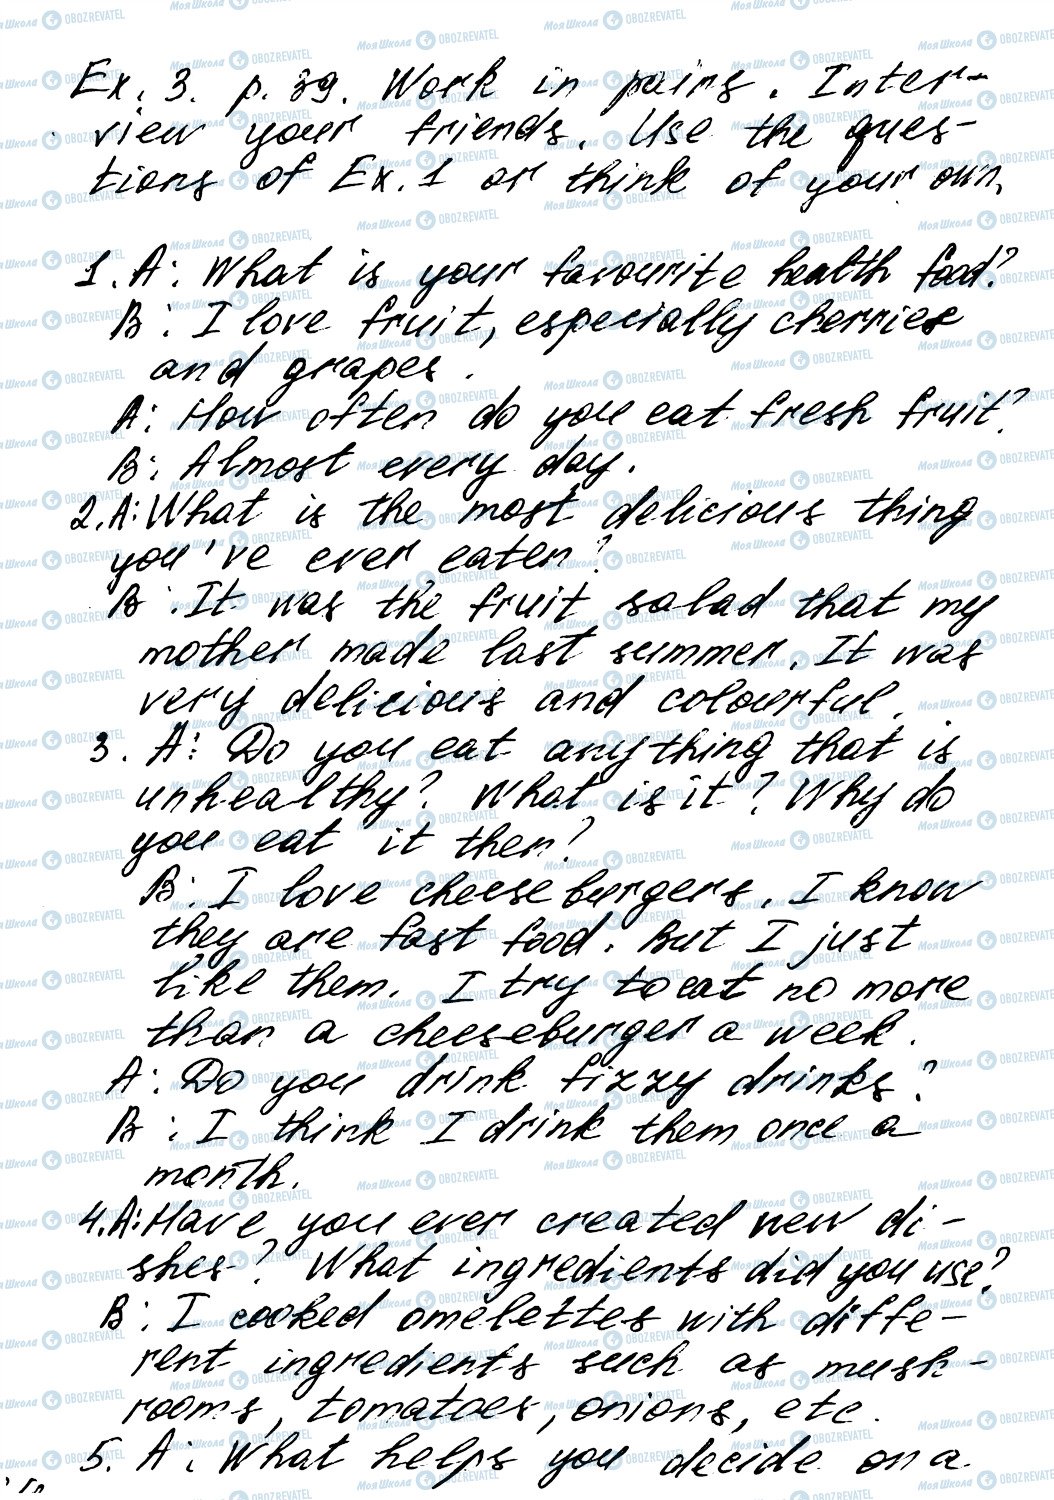 Ex. 3. p. 39. Work in pairs. Inter-
view your friends. Use the ques-
tions of Ex. 1 or think of your own.
1. A: What is your favourite health food?
B: I love fruit, especially cherries
and grapes.
A: How often do you eat fresh fruit?
B: Almost every day.
2. A: What is the most delicious thing
you've ever eaten?
B: It was the fruit salad that my
mother made last summer. It was
very delicious and colourful.
3. A: Do you eat anything that is
unhealthy? What is it? Why do
you eat it then?
B: I love cheeseburgers. I know
they are fast food. But I just
like them. I try to eat no more
than a cheeseburger a week.
A: Do you drink fizzy drinks?
B: I think I drink them once a
month.
4. A: Have you ever created new di-
shes? What ingredients did you use?
B: I cooked omelettes with diffe-
rent ingredients such as mush-
rooms, tomatoes, onions, etc.
5. A: What helps you decide on a